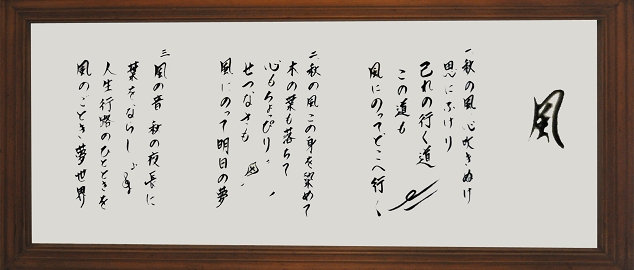 風
一 秋の風 心吹きぬけ
思にふけり
己れの行く道
この道も
風にのってどこへ行く
二 秋の風 この身を染めて
木の葉も落ちて
心もちょっぴり
せつなさも
風にのって明日の夢
三 風の音 秋の夜長に
葉をならし
人生行路のひとときを
風のごとき夢世界